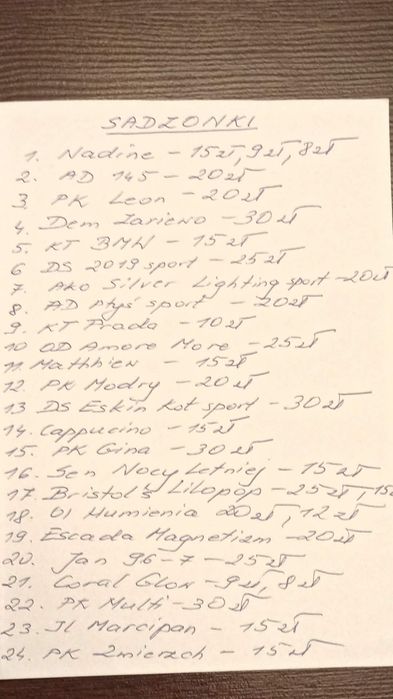 SADZONKI
1. Nadine - 15zł, 9zł, 8zł
2. AD 145 - 20zł
3. PK Leon - 20zł
4. Dem Zariewo - 30zł
5. KT BMW - 15zł
6 DS 2019 sport - 25zł
7. Ako Silver Lighting sport - 20zł
8. AD Ptyś sport - 20zł
9. KT Prada - 10zł
10 OD Amore More - 25zł
11. Mathhiew - 15zł
12. PK Modry - 20zł
13 DS Eskin Kot sport - 30zł
14. Cappucino - 15zł
15. PK Gina - 30zł
16. Sen Nocy Letniej - 15zł
17. Bristol's Lilopop - 25zł, 15
18. Ul Humienia 20zł, 12zł
19. Escada Magnetizm - 20zł
20. Jan 96-7 - 25zł
21. Coral Glow - 9zł, 8zł
22. PK Multi - 30zł
23. Jl Marcipan - 15zł
24. PK Zmierzch - 15zł